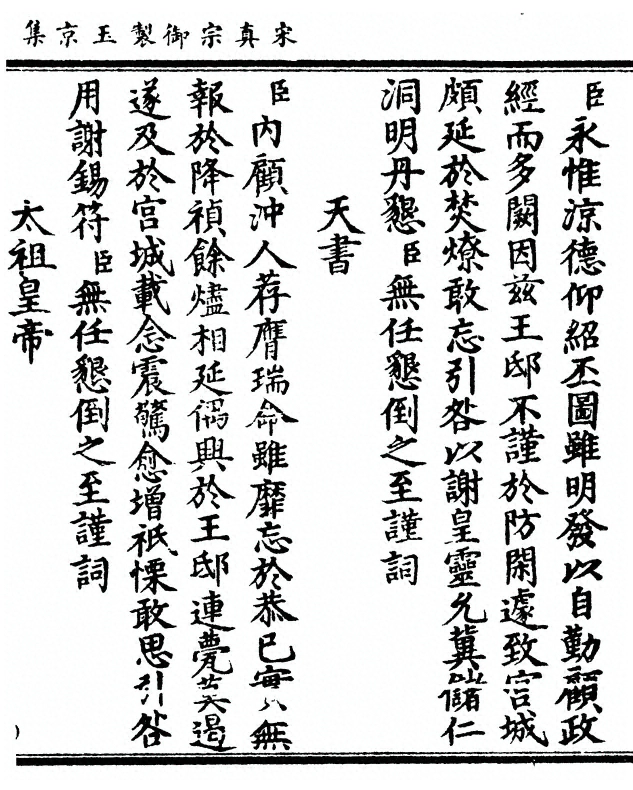 宋真宗御製玉京集
臣永惟涼德仰紹丕圖雖明發以自勤顧政
經而多闕因茲王邸不謹於防閑遽致宮城
頗延於焚燎敢忘引咎以謝皇靈允冀儲仁
洞明丹懇臣無任懇倒之至謹詞
天書
臣內顧沖人荐膺瑞命雖靡忘於恭已實無
報於降禎餘燼相延偶興於王邸連甍莫遏
遂及於宮城載念震驚愈增祇慄敢思引咎
用謝錫符臣無任懇倒之至謹詞
太祖皇帝